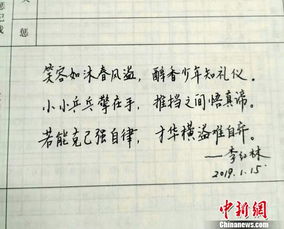 惩
笑容如沐春风溢，醇香少年知礼仪。
小小乒乓擎在手，推挡之间悟真谛。
若能克己强自律，才华横溢难自弃。
——李红林
2019.1.15
中新网